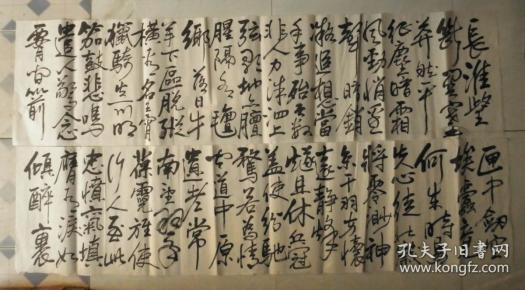 長淮望
斷関塞
莽然平
征塵暗霜
風勁悄邊
聲黯銷
凝追想當
年事殆天數
非人力洙泗上
弦歌地亦膻
腥隔水氈
鄉落日牛
羊下區脫縱
橫看名王宵
獵騎火一川明
笳鼓悲鳴
遣人驚念
腰间箭
匣中劍空
埃蠹竟
何成時易
失心徒壯歲
將零渺神
京干羽方懷
遠靜烽
燧且休兵冠
蓋使紛馳
騖若為情
聞道中原
遺老常
南望翠
葆霓旌使
行人至此
忠憤氣填
膺有淚如
傾 醉裏
孔夫子旧书网
www.kongfz.com